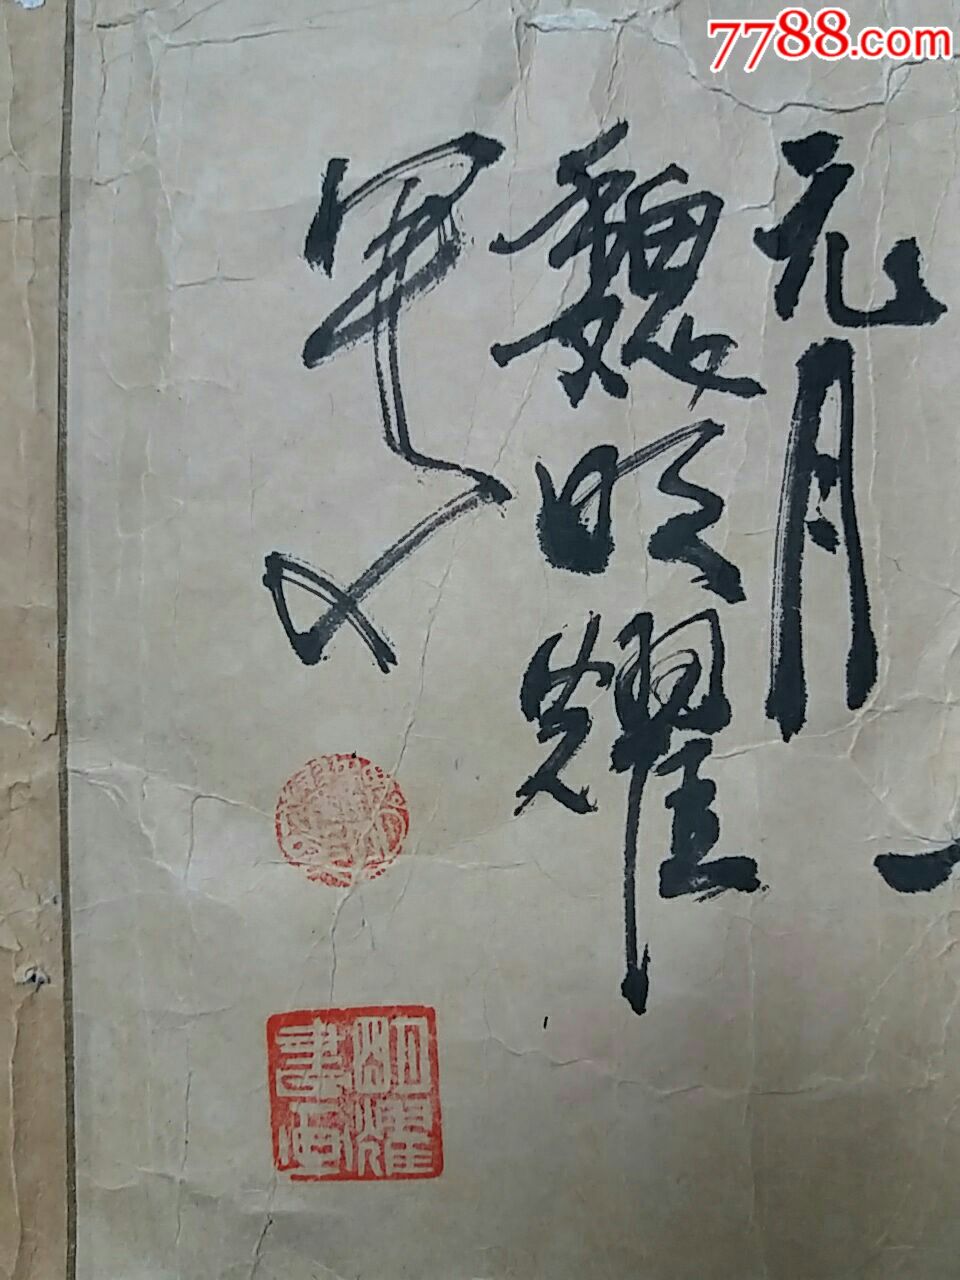 7788.com
元月
一
魏明耀
写
明耀
書画